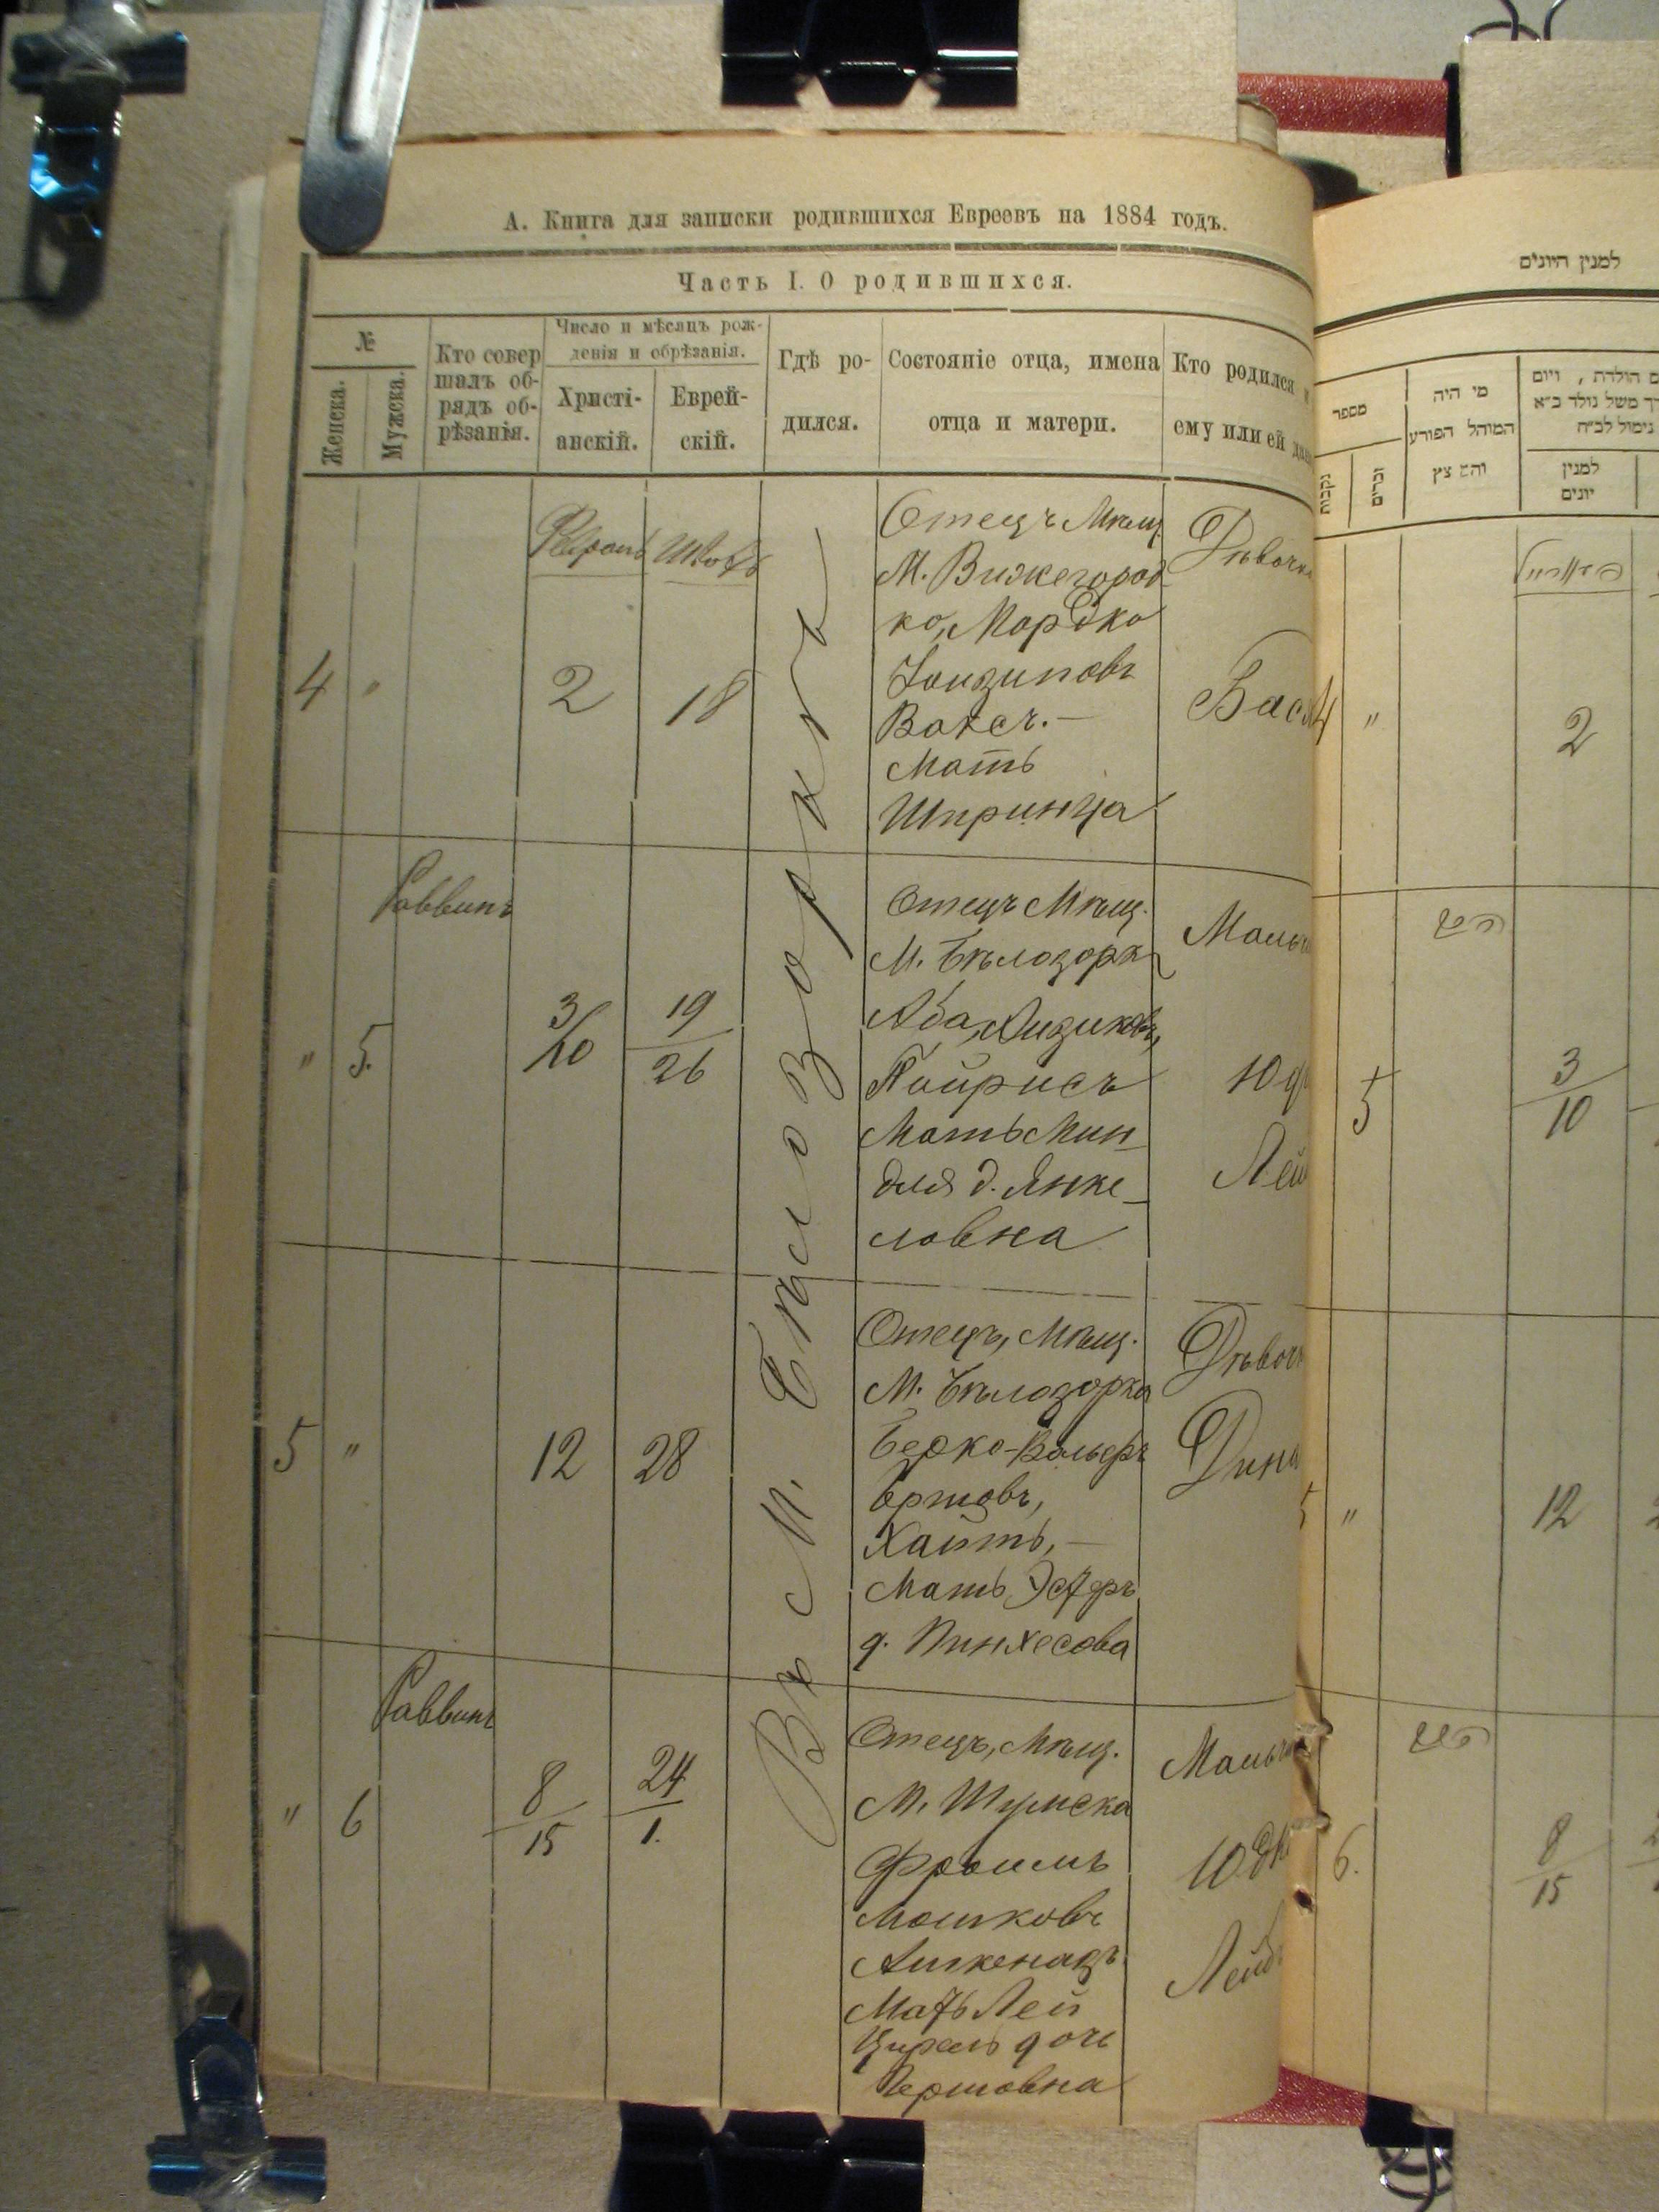 А. Книга для записки родившихся Евреевъ на 1884 годъ.
Часть I. О родившихся.
№
Женска.
Мужска.
Кто совер
шалъ об-
рядъ об-
рѣзанія.
Число и мѣсяцъ рож-
денія и обрѣзанія.
Христі-
анскій.
Еврей-
скій.
Гдѣ ро-
дился.
Состояніе отца, имена
отца и матери.
Кто родился и
ему или ей
Въ М. Бѣлозорка
4 "
2
18
Отецъ Мѣщ.
М. Вижегород
ко, Мордко
Ваксъ.—
Мать
Шпринца
Дѣвочк
Бас
" 5.
Раввинъ
3/10
19/26
Отецъ Мѣщ.
М. Бѣлозорка
Аба
Мать Мин_
для д. Янке_
ловна
Мальч
Юд
Лей
5 "
12
28
Отецъ, Мѣщ.
М. Бѣлозорка
Берко-Вольфъ
Хаитъ,—
Мать Эстеръ
д. Пинхесова
Дѣвоч
Дина
" 6
Раввинъ
8/15
24/1.
Отецъ, Мѣщ.
М. Шумска
Фроимъ
Мошковъ
Ашкеназъ
Мать Лея
Цирель дочь
Гершовна
Мальч
Лейб
למנין היונים
מספר
נקבות
זכרים
מי היה
המוהל הפורע
והמצץ
ם הולדת , ויום
רך משל נולד ב״א
נימול לב״ח
למנין
יונים
פעבראל
4 "
2
5
3/10
5 "
12
6.
8/15